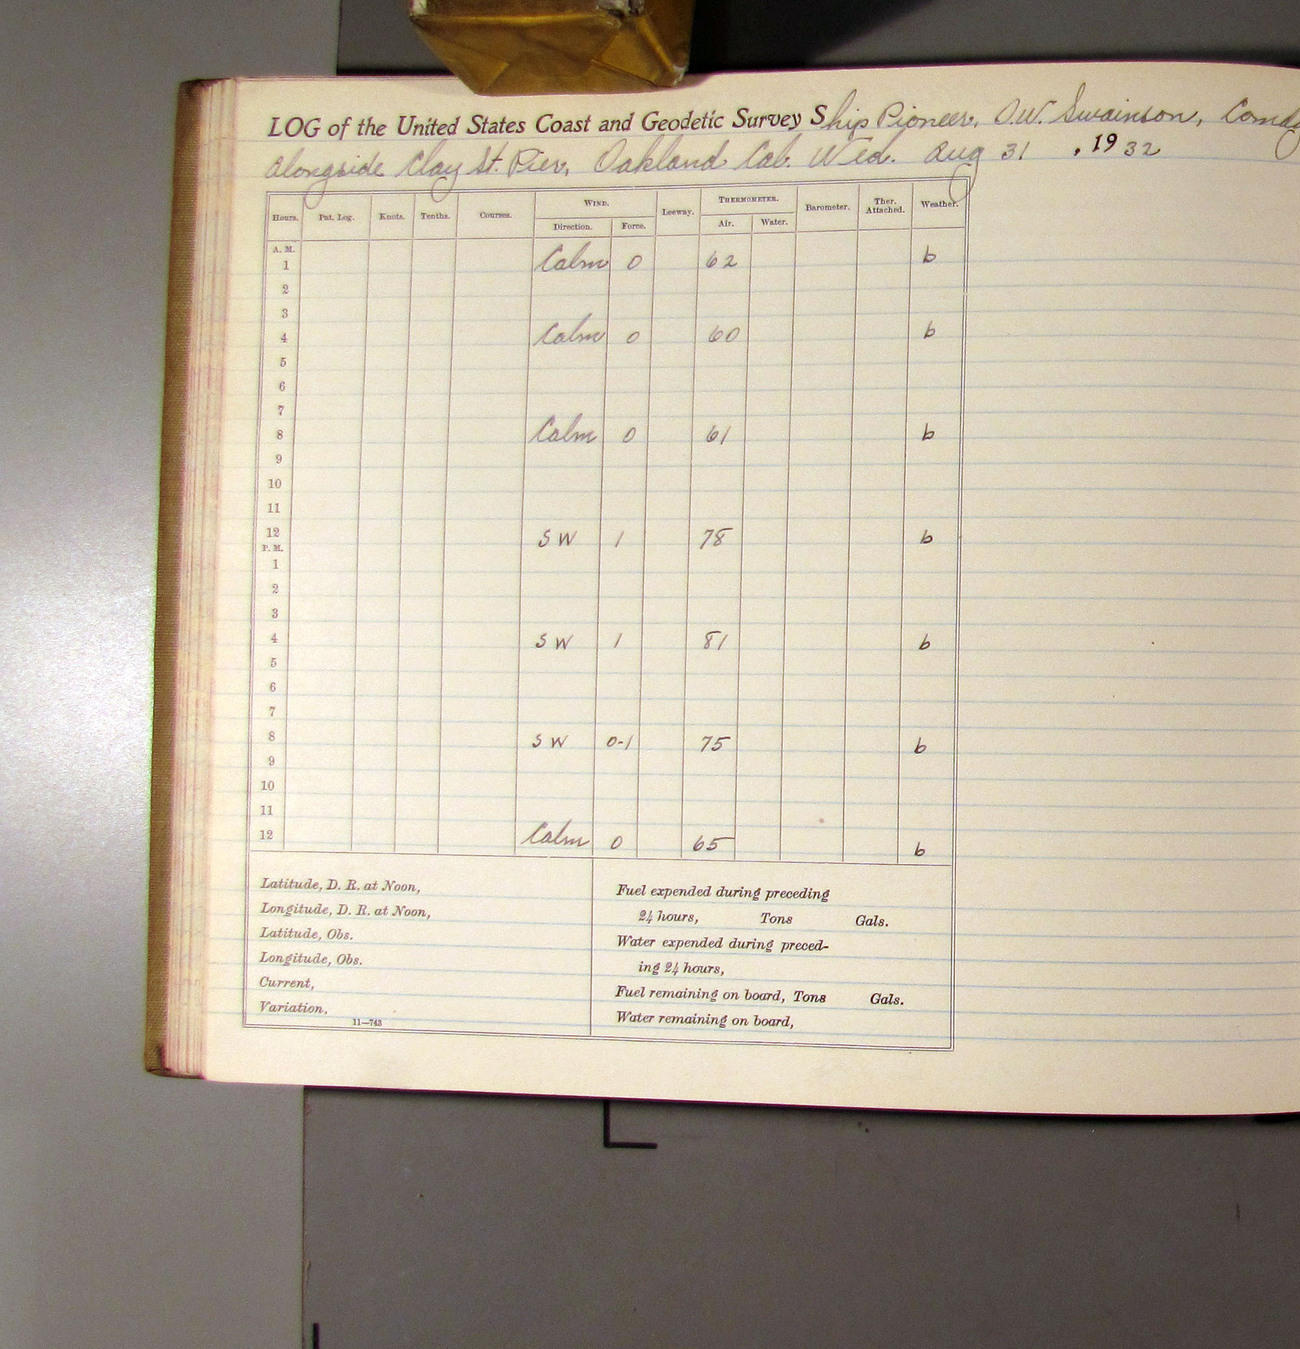 LOG of the United States Coast and Geodetic Survey Ship Pioneer, O.W. Swainson, Comdg
alongside Clay St. Pier, Oakland Cal. Wed. Aug 31 , 1932
Hours. Pat. Log. Knots. Tenths. Courses. WIND. Leeway. THERMOMETER. Barometer. Ther. Attached. Weather.
Direction. Force. Air. Water.
A. M.
1 Calm 0 62 b
2
3
4 Calm 0 60 b
5
6
7
8 Calm 0 61 b
9
10
11
12 SW 1 78 b
P. M.
1
2
3
4 SW 1 81 b
5
6
7
8 SW 0-1 75 b
9
10
11
12 Calm 0 65 b
Latitude, D. R. at Noon,
Longitude, D. R. at Noon,
Latitude, Obs.
Longitude, Obs.
Current,
Variation,
11—743
Fuel expended during preceding
24 hours, Tons Gals.
Water expended during preced-
ing 24 hours,
Fuel remaining on board, Tons Gals.
Water remaining on board,